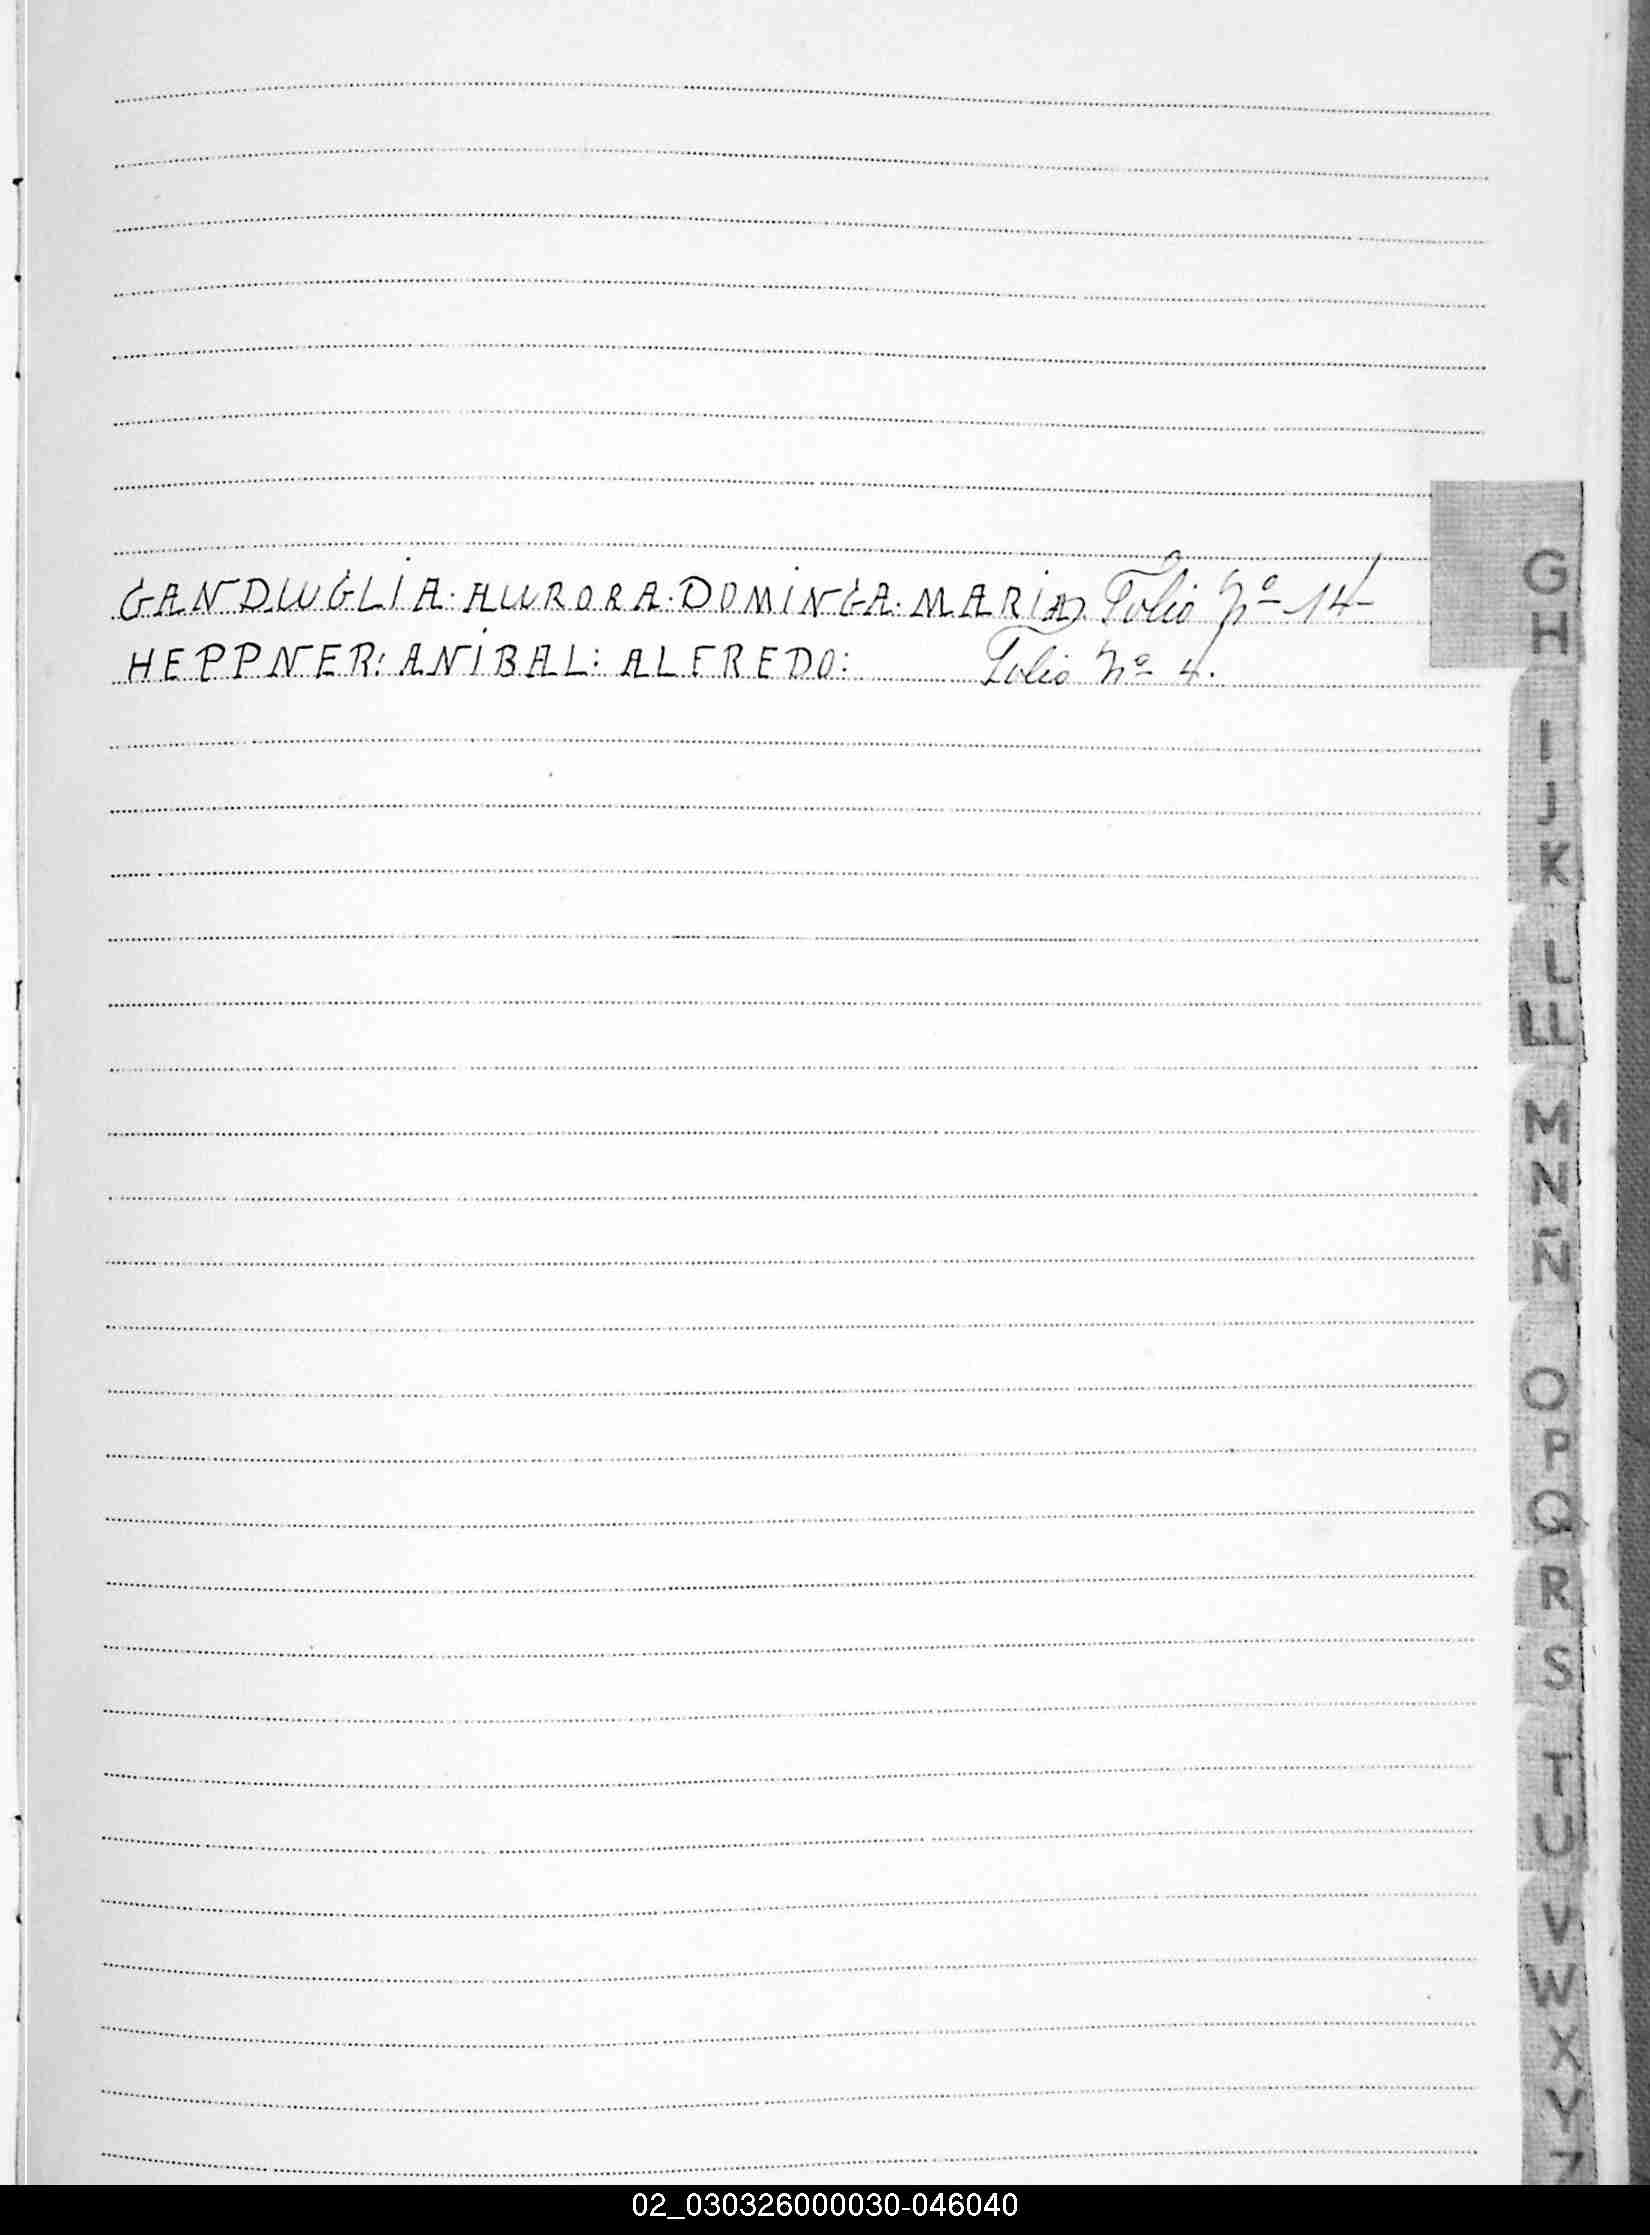 GANDUUGLIA. AURORA. DOMINGA. MARIA. Folio Nº 14
HEPPNER: ANIBAL: ALFREDO: Folio Nº 4.
G
H
I
J
K
L
LL
M
N
Ñ
O
P
Q
R
S
T
U
V
W
X
Y
Z
02_030326000030-046040